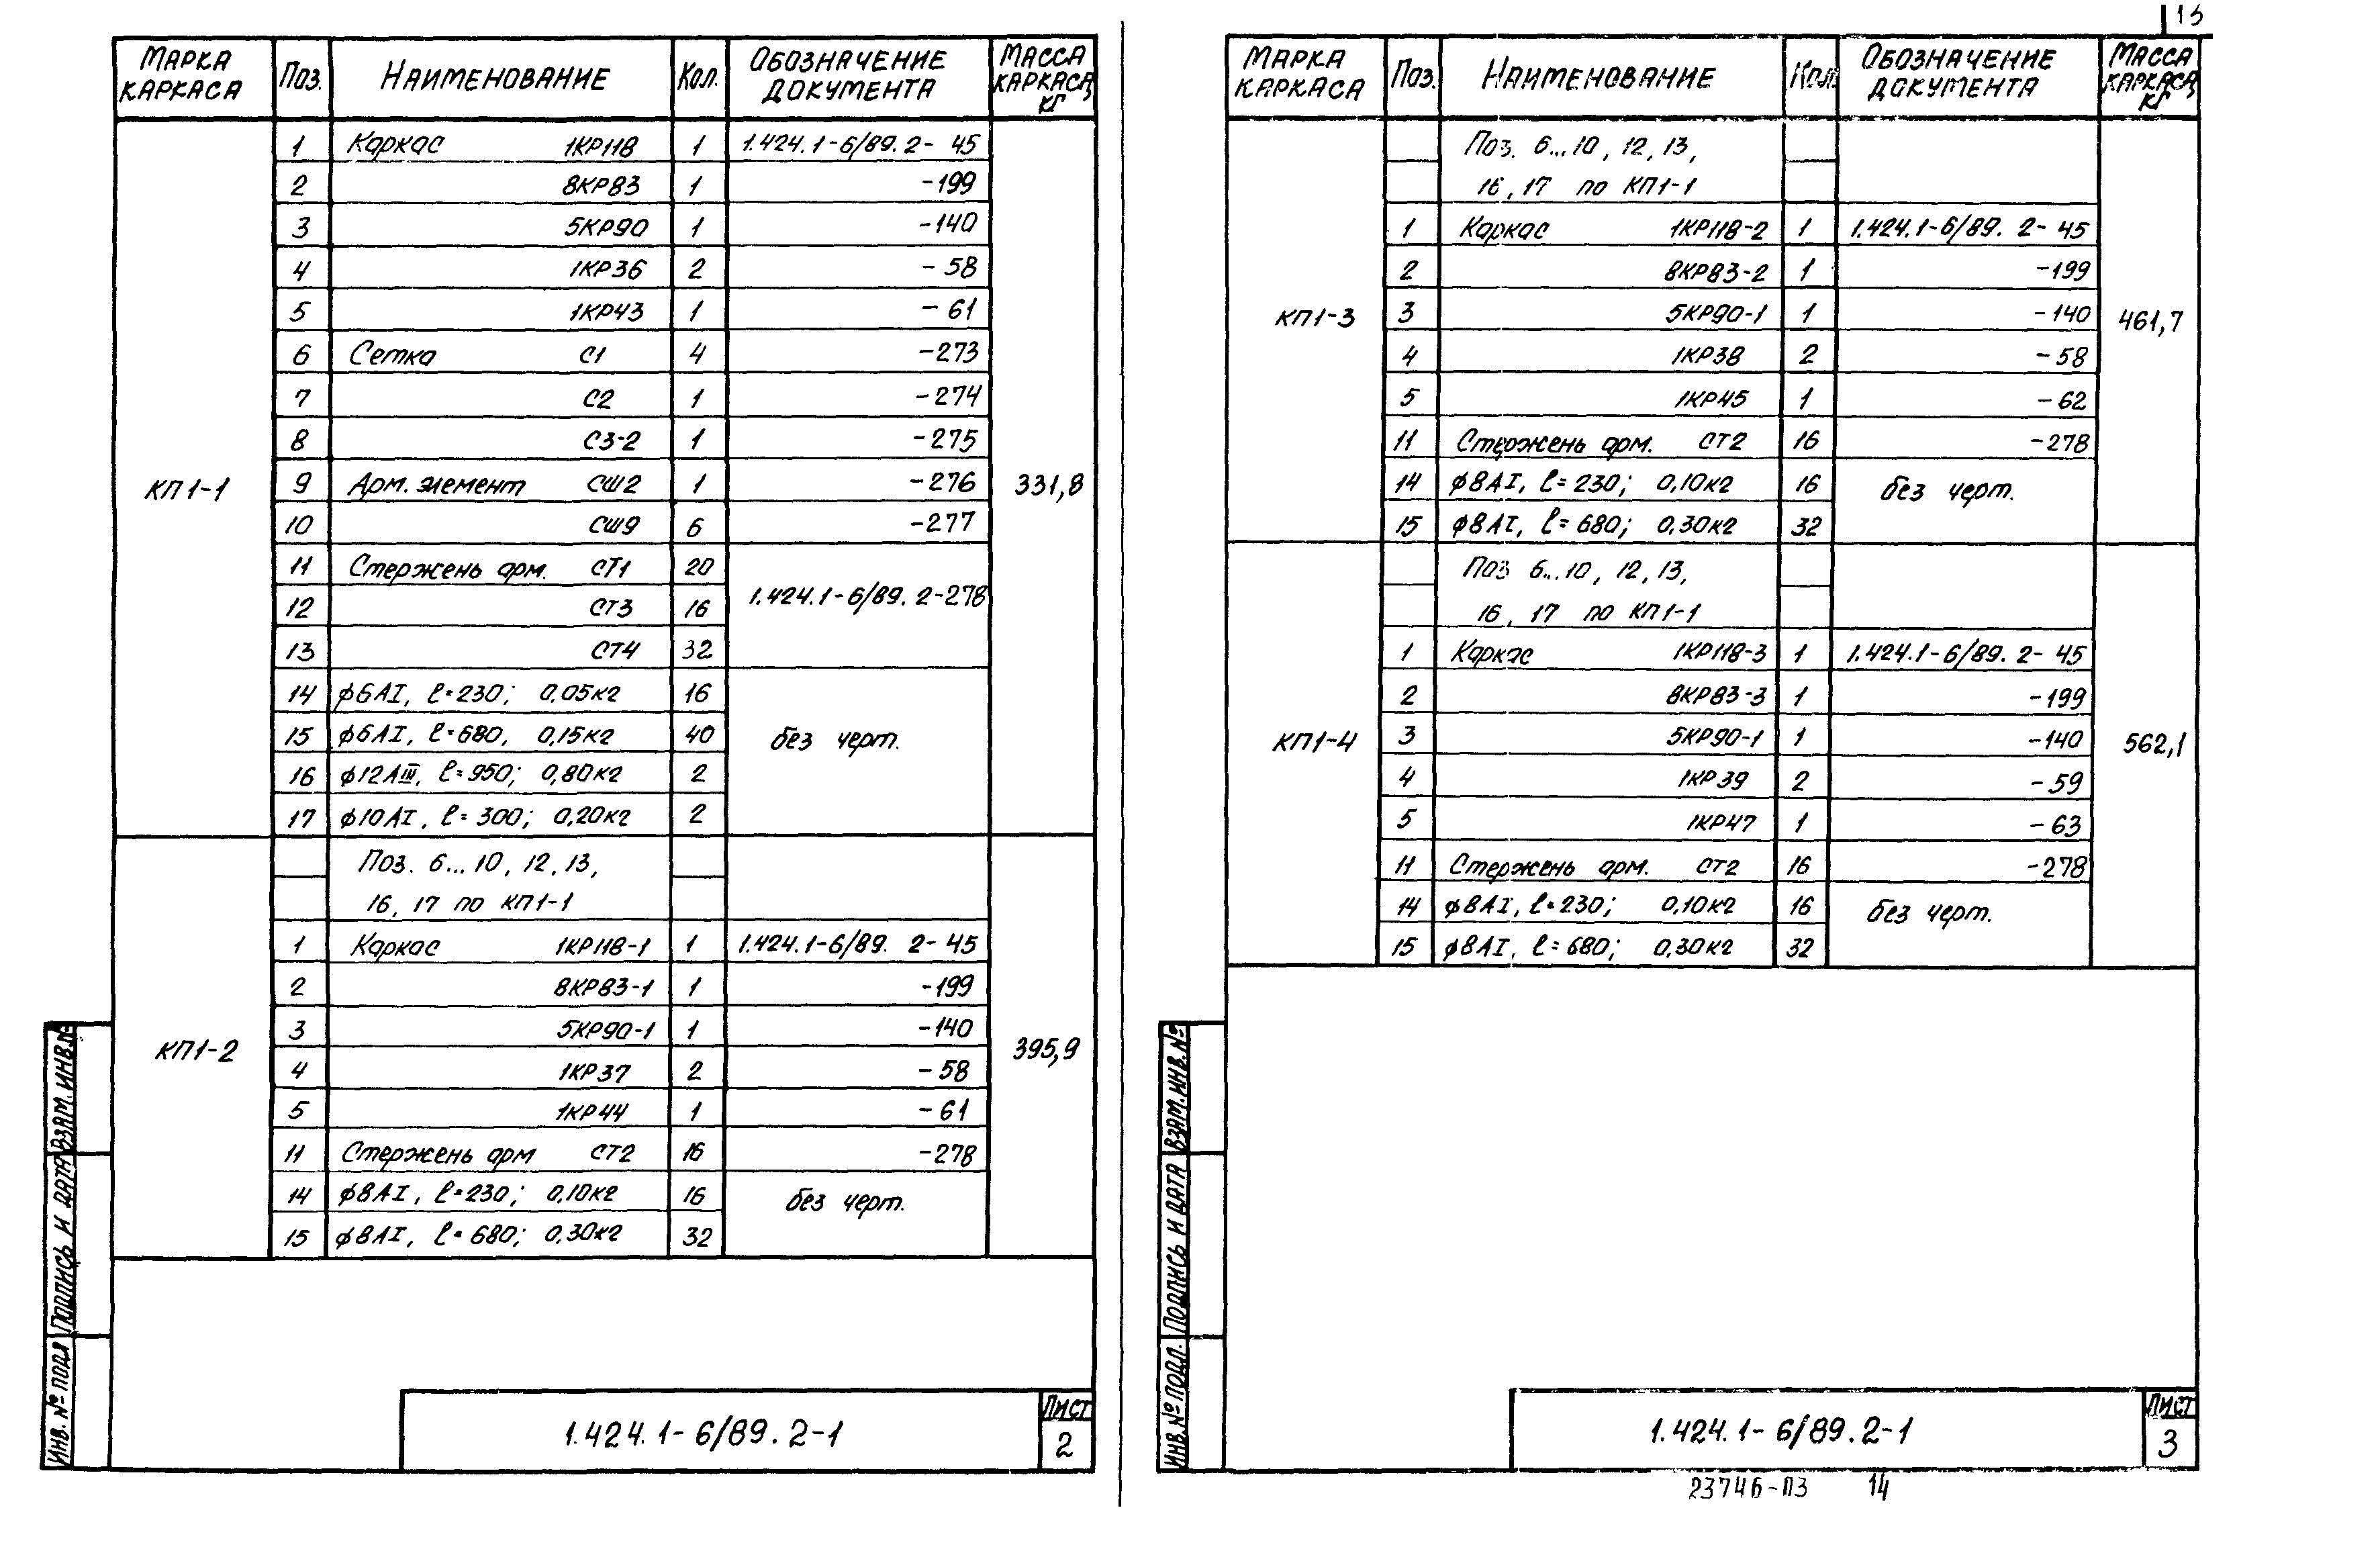 МАРКА КАРКАСА | ПОЗ. | НАИМЕНОВАНИЕ | КОЛ. | ОБОЗНАЧЕНИЕ ДОКУМЕНТА | МАССА КАРКАСА, КГ
КП1-1 | 331,8
1 | Каркас 1КР118 | 1 | 1.424.1-6/89.2- 45
2 | 8КР83 | 1 | -199
3 | 5КР90 | 1 | -140
4 | 1КР36 | 2 | - 58
5 | 1КР43 | 1 | - 61
6 | Сетка С1 | 4 | -273
7 | С2 | 1 | -274
8 | С3-2 | 1 | -275
9 | Арм. элемент СШ2 | 1 | -276
10 | СШ9 | 6 | -277
11 | Стержень арм. СТ1 | 20 | 1.424.1-6/89.2-278
12 | СТ3 | 16
13 | СТ4 | 32
14 | ϕ6АI, ℓ=230; 0,05кг | 16 | без черт.
15 | ϕ6АI, ℓ=680, 0,15кг | 40
16 | ϕ12АIII, ℓ=950; 0,80кг | 2
17 | ϕ10АI, ℓ=300; 0,20кг | 2
КП1-2 | 395,9
Поз. 6...10, 12, 13,
16, 17 по КП1-1
1 | Каркас 1КР118-1 | 1 | 1.424.1-6/89. 2- 45
2 | 8КР83-1 | 1 | -199
3 | 5КР90-1 | 1 | -140
4 | 1КР37 | 2 | - 58
5 | 1КР44 | 1 | - 61
11 | Стержень арм СТ2 | 16 | -278
14 | ϕ8АI, ℓ=230; 0,10кг | 16 | без черт.
15 | ϕ8АI, ℓ=680; 0,30кг | 32
ВЗАМ. ИНВ.№
ПОДПИСЬ И ДАТА
ИНВ. № ПОДЛ
1.424.1-6/89.2-1
ЛИСТ
2
13
МАРКА КАРКАСА | ПОЗ. | НАИМЕНОВАНИЕ | КОЛ. | ОБОЗНАЧЕНИЕ ДОКУМЕНТА | МАССА КАРКАСА, КГ
КП1-3 | 461,7
Поз. 6...10, 12, 13,
16, 17 по КП1-1
1 | Каркас 1КР118-2 | 1 | 1.424.1-6/89. 2- 45
2 | 8КР83-2 | 1 | -199
3 | 5КР90-1 | 1 | -140
4 | 1КР38 | 2 | - 58
5 | 1КР45 | 1 | - 62
11 | Стержень арм. СТ2 | 16 | -278
14 | ϕ8АI, ℓ=230; 0,10кг | 16 | без черт.
15 | ϕ8АI, ℓ=680; 0,30кг | 32
КП1-4 | 562,1
Поз 6...10, 12, 13,
16, 17 по КП1-1
1 | Каркас 1КР118-3 | 1 | 1.424.1-6/89. 2- 45
2 | 8КР83-3 | 1 | -199
3 | 5КР90-1 | 1 | -140
4 | 1КР39 | 2 | - 59
5 | 1КР47 | 1 | - 63
11 | Стержень арм. СТ2 | 16 | -278
14 | ϕ8АI, ℓ=230; 0,10кг | 16 | без черт.
15 | ϕ8АI, ℓ=680; 0,30кг | 32
ВЗАМ.ИНВ.№
ПОДПИСЬ И ДАТА
ИНВ.№ПОДЛ.
1.424.1-6/89.2-1
ЛИСТ
3
23746-03 14